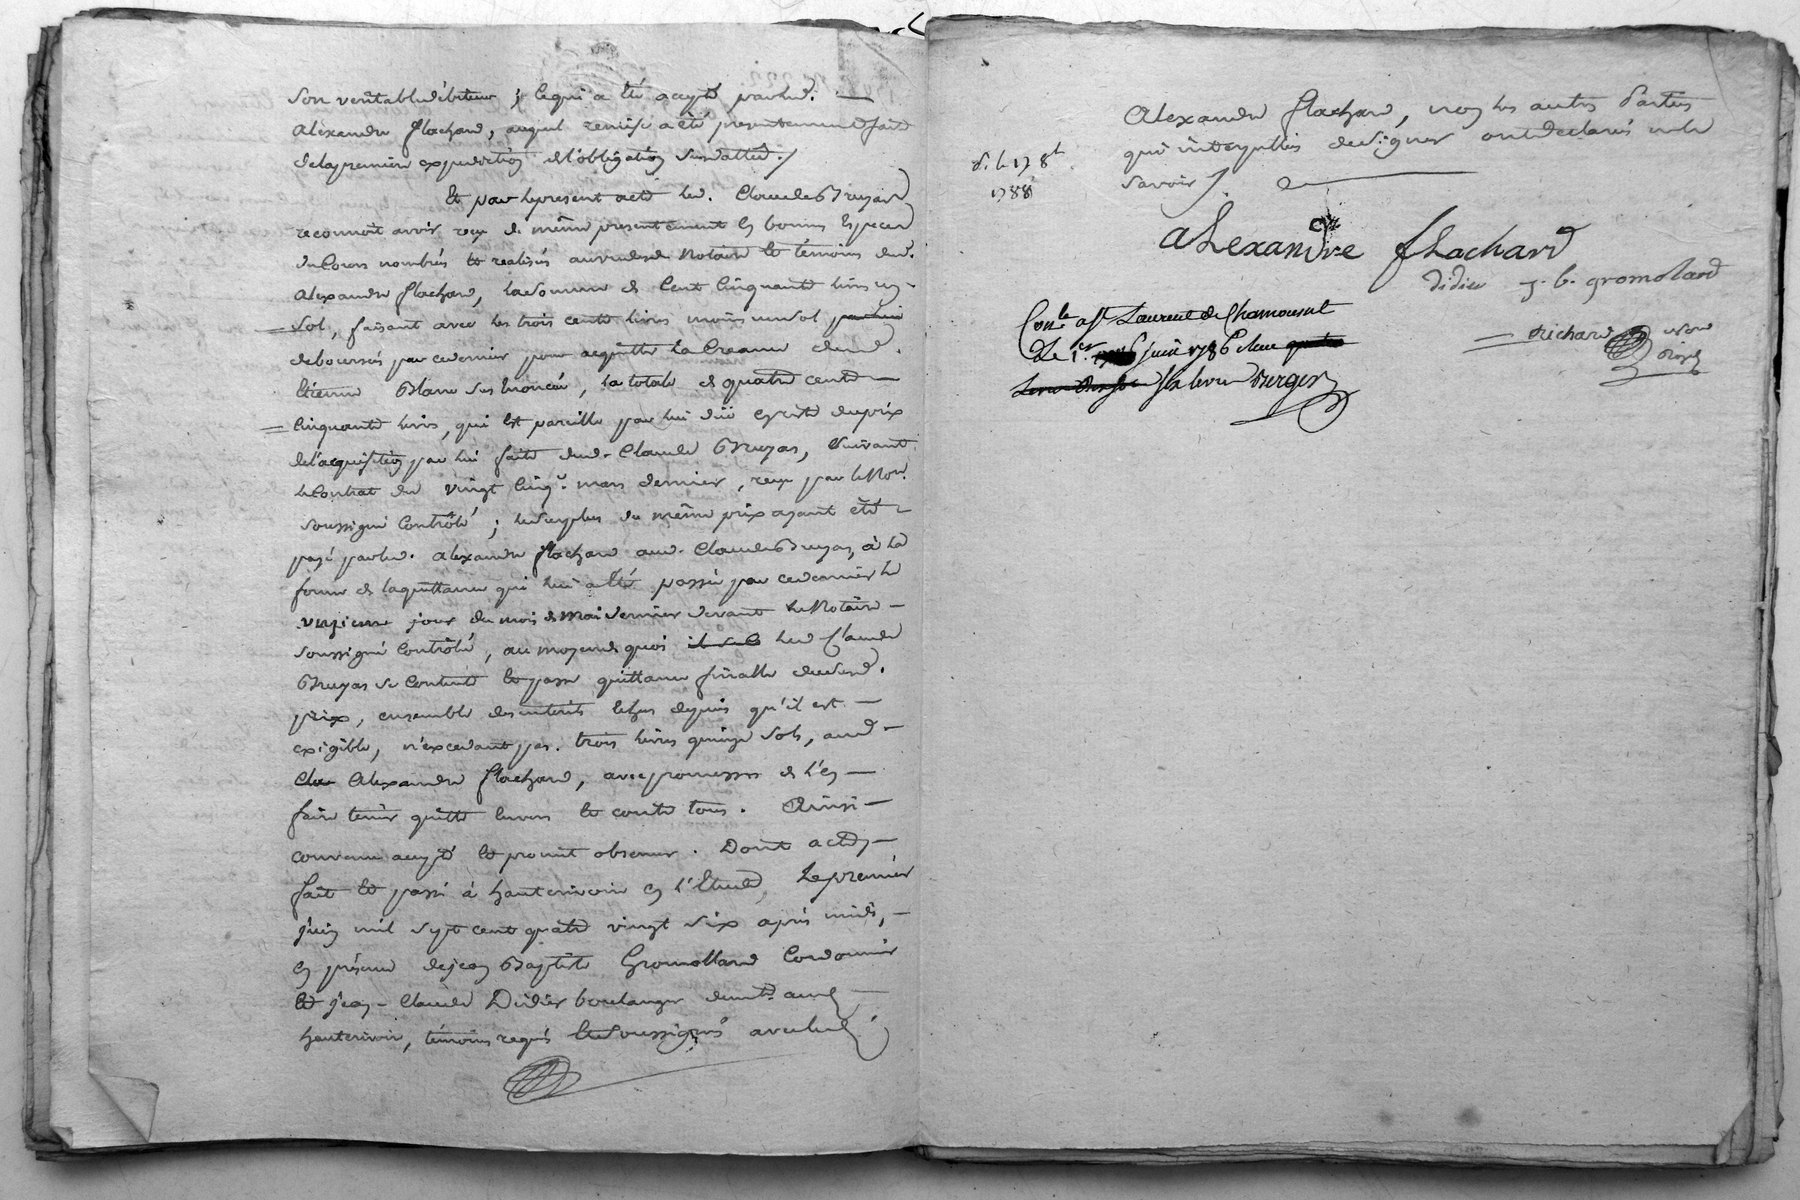 son veritable debiteur ; ce qui a été accepté par led.
Alexandre flachard, auquel remise a été presentement faite
de la premiere expedition de l'obligation susdattée./
Et par le present acte led. Claude Bruyas
reconnoit avoir reçu de même presentement en bonnes Especes
de Cours nombrés et realisés au vu des de Notaire et témoins dud.
Alexandre flachard, la somme de Cent Cinquante livres un
sol, faisant avec les trois cents livres moins un sol
deboursés par ce dernier pour acquitter la Creance dud.
Etienne Blanc sus enoncée, la totale de quatre cents
Cinquante livres, qui est pareille par lui düe en reste du prix
de l'acquisition par lui faite dud. Claude Bruyas, suivant
le Contrat du vingt Cinq mars dernier, reçu par le Nore
soussigné Contrôlé ; le surplus du même prix ayant été
payé par led. Alexandre flachard aud. Claude Bruyas, à la
forme de la quittance qui lui a été passée par ce dernier le
onzieme jour du mois de Mai dernier devant le Notaire
soussigné Contrôlé, au moyen de quoi led Claude
Bruyas se Contente et passe quittance finalle dud.
prix, ensemble des interêts échus depuis qu'il est
exigible, n'excedant pas trois livres quinze sols, aud
Alexandre flachard, avec promesses de l'en
faire tenir quitte envers et contre tous. Ainsi
convenu accepté et promit observer. Dont acte
fait et passé à hauterivoire en l'Etude, le premier
juin mil sept cent quatre vingt six après midi,
en présence de jean Baptiste Gromollard Cordonnier
et jean-Claude Didier boulanger demt. aud
hauterivoire, témoins requis et soussignés avec led
Alexandre flachard, non les autres Parties
qui interpellées de signer ont declarés ne le
savoir /.
d. le 17 8b
1788
Alexandre flachard
didier j. b. gromolard
Richard
Conle a St Laurent de Chamousset
Le 6 juin 1786 Reçu
Berger